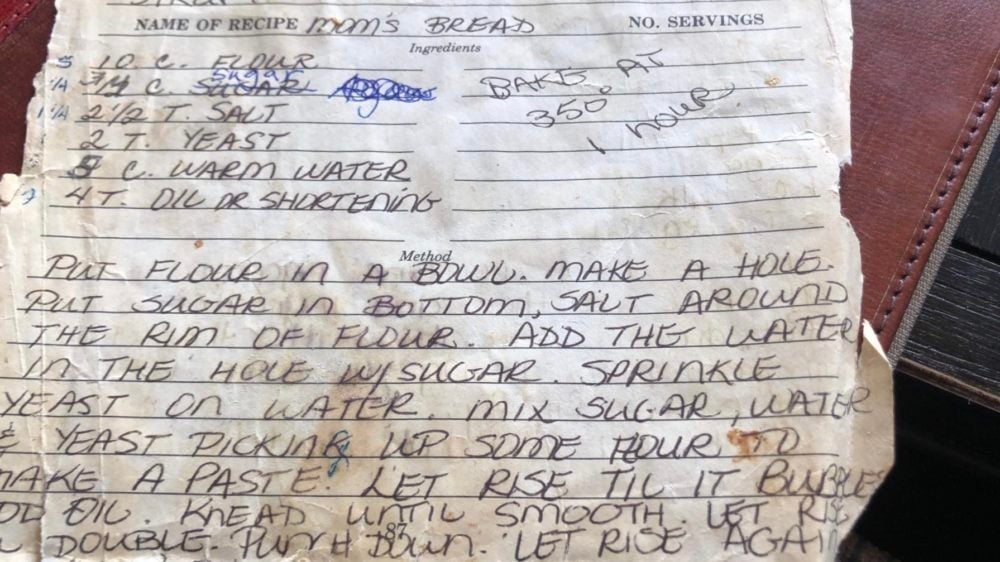 NAME OF RECIPE MOM'S BREAD NO. SERVINGS
Ingredients
5 10 C. FLOUR
3/4 C. SUGAR
sugar
2 1/2 T. SALT
2 T. YEAST
C. WARM WATER
4 T. OIL OR SHORTENING
BAKE AT
350°
1 HOUR
Method
PUT FLOUR IN A BOWL. MAKE A HOLE.
PUT SUGAR IN BOTTOM, SALT AROUND
THE RIM OF FLOUR. ADD THE WATER
IN THE HOLE W/SUGAR. SPRINKLE
YEAST ON WATER. MIX SUGAR, WATER
& YEAST PICKING UP SOME FLOUR TO
MAKE A PASTE. LET RISE TIL IT BUBBLES
OIL. KNEAD UNTIL SMOOTH. LET RISE
DOUBLE. PUNCH DOWN. LET RISE AGAIN
87